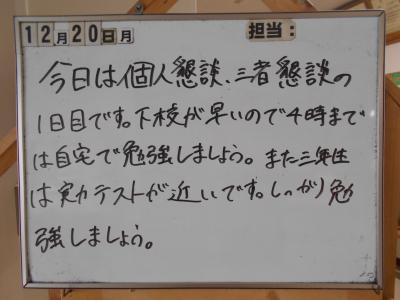 12月20日月 担当:
今日は個人懇談、三者懇談の
1日目です。下校が早いので4時まで
は自宅で勉強しましょう。また三年生
は実力テストが近いです。しっかり勉
強しましょう。